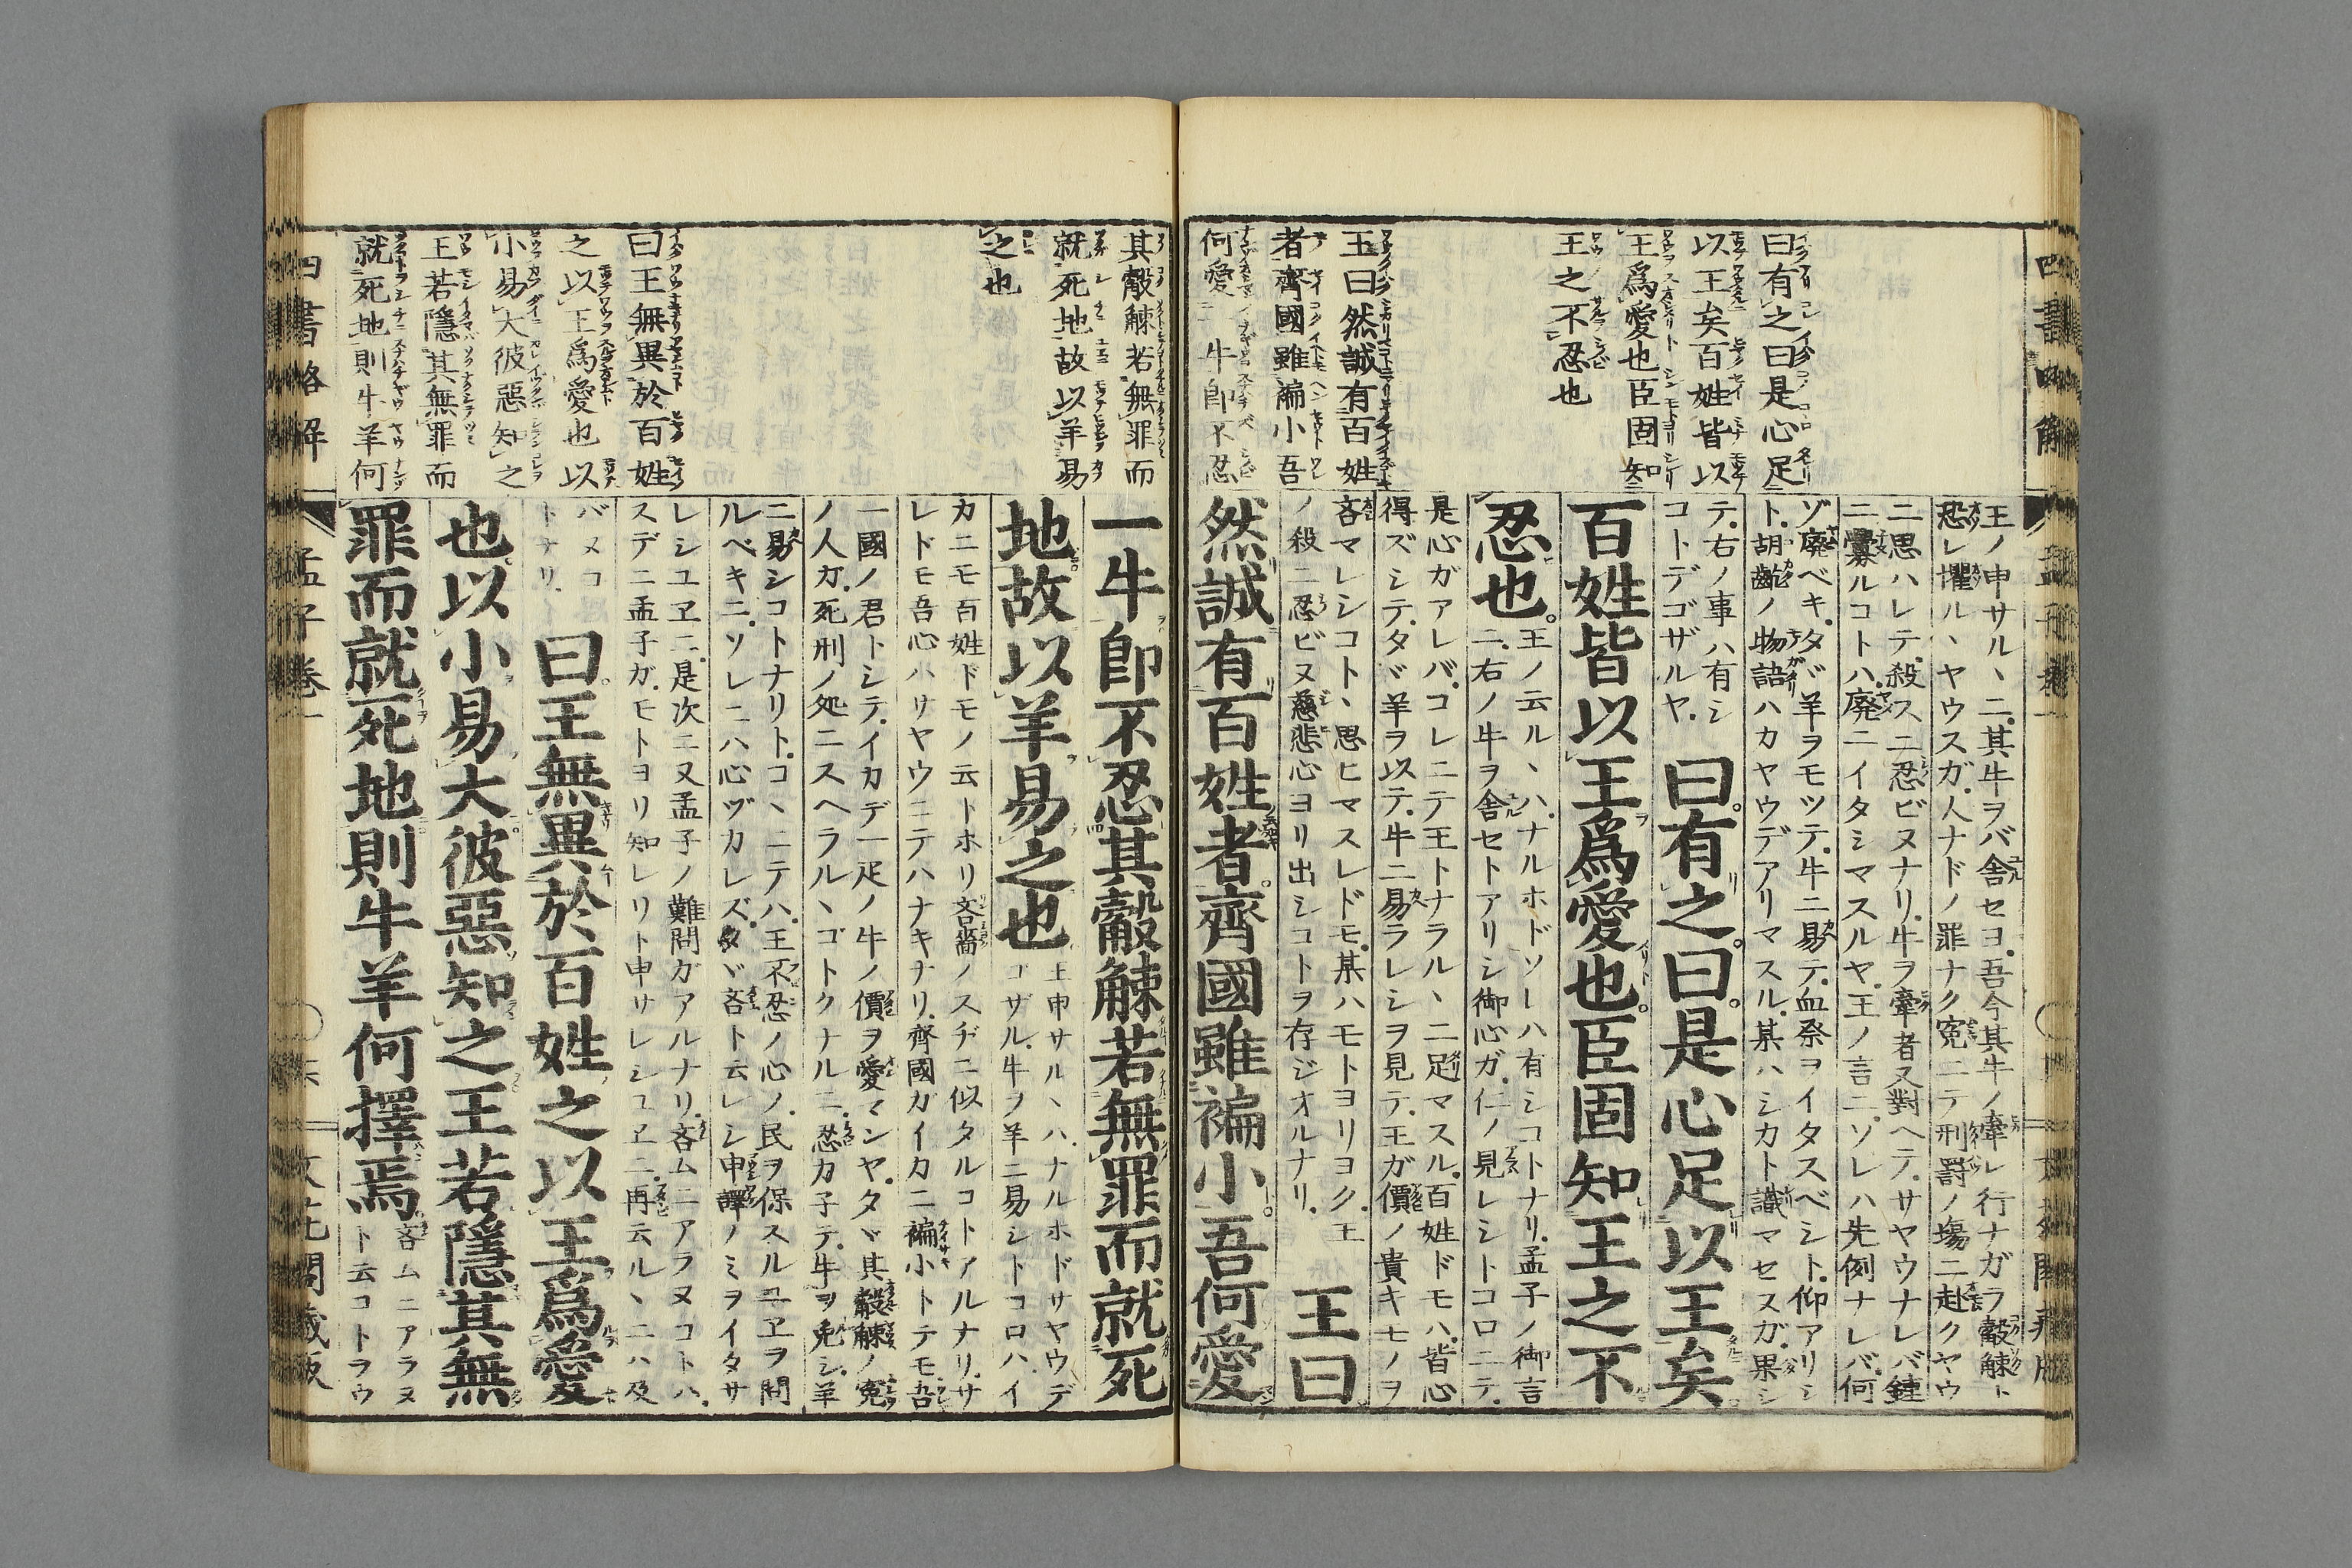 曰有之曰是心足
以王矣百姓皆以
王爲愛也臣固知
王之不忍也
王曰然誠有百姓
者齊國雖褊小吾
何愛一牛卽不忍
王ノ申サルヽニ其牛ヲバ舎セヨ吾今其牛ノ牽レ行ナガラ觳觫ト
恐レ懼ルヽヤウスガ人ナドノ罪ナク寃ニテ刑罸ノ塲ニ赴クヤウ
ニ思ハレテ殺スニ忍ビヌナリ牛ヲ牽者又對ヘテサヤウナレバ鍾
ニ釁ルコトハ廃ニイタシマスルヤ王ノ言ニソレハ先例ナレバ何
ゾ廢ベキタヾ羊ヲモツテ牛ニ易テ血祭ヲイタスベシト仰アリシ
ト胡齕ノ物語ハカヤウデアリマスル某ハシカト識マセスガ果シ
テ右ノ事ハ有シ
コトデゴザルヤ
曰有之曰是心足以王矣
百姓皆以王爲愛也臣固知王之不
忍也
王ノ云ルヽハナルホドソレハ有シコトナリ孟子ノ御言
ニ右ノ牛ヲ舎セトアリシ御心ガ仁ノ見レシトコロニテ
是心ガアレバコレニテ王トナラルヽニ足マスル百姓ドモハ皆心
得ズシテタヾ羊ヲ以テ牛ニ易ラレシヲ見テ王ガ價ノ貴キモノヲ
吝マレシコトヽ思ヒマスレドモ某ハモトヨリヨク王
ノ殺ニ忍ビヌ慈悲心ヨリ出シコトヲ存ジオルナリ
王曰
然誠有百姓者齊國雖褊小吾何愛
其觳觫若無罪而
就死地故以羊易
之也
曰王無異於百姓
之以王爲愛也以
小易大彼惡知之
王若隱其無罪而
就死地則牛羊何
一牛卽不忍其觳觫若無罪而就死
地故以羊易之也
王申サルヽハナルホドサヤウデ
ゴザル牛ヲ羊ニ易シトコロハイ
カニモ百姓ドモノ云トホリ吝嗇ノスヂニ似タルコトアルナリサ
レドモ吾心ハサヤウニテハナキナリ齊國ガイカニ褊小トテモ吾
一國ノ君トシテイカデ一疋ノ牛ノ價ヲ愛マンヤタヾ其觳觫ノ寃
ノ人ガ死刑ノ処ニスヘラルヽゴトクナルニ忍カ子テ牛ヲ免シ羊
ニ易シコトナリトコヽニテハ王不忍ノ心ノ民ヲ保スルユヱヲ問
ルベキニソレニハ心ヅカレズタヾ吝ト云レシ申譯ノミヲイタサ
レシユヱニ是次ニ又孟子ノ難問ガアルナリ吝ムニアラヌコトハ
スデニ孟子ガモトヨリ知レリト申サレシユヱニ再云ルヽニハ及
バヌコ
トナリ
曰王無異於百姓之以王爲愛
也以小易大彼惡知之王若隱其無
罪而就死地則牛羊何擇焉
吝ムニアラヌ
ト云コトヲウ
四書略解
孟子卷一
文花閣藏版